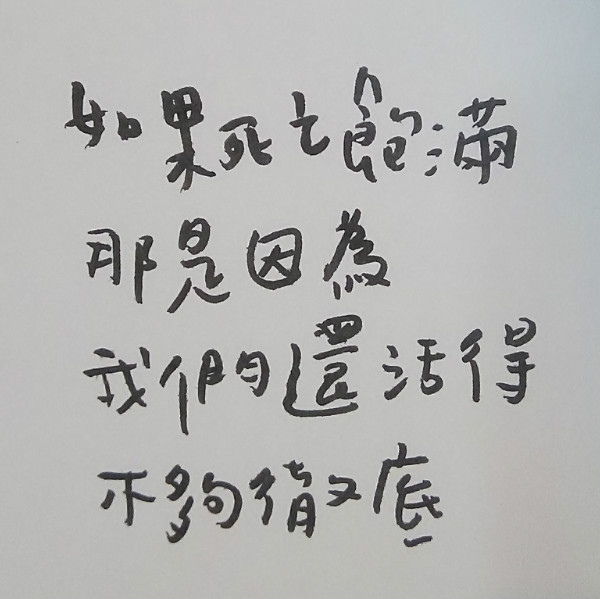 如果死亡飽滿
那是因為
我們還活得
不夠徹底